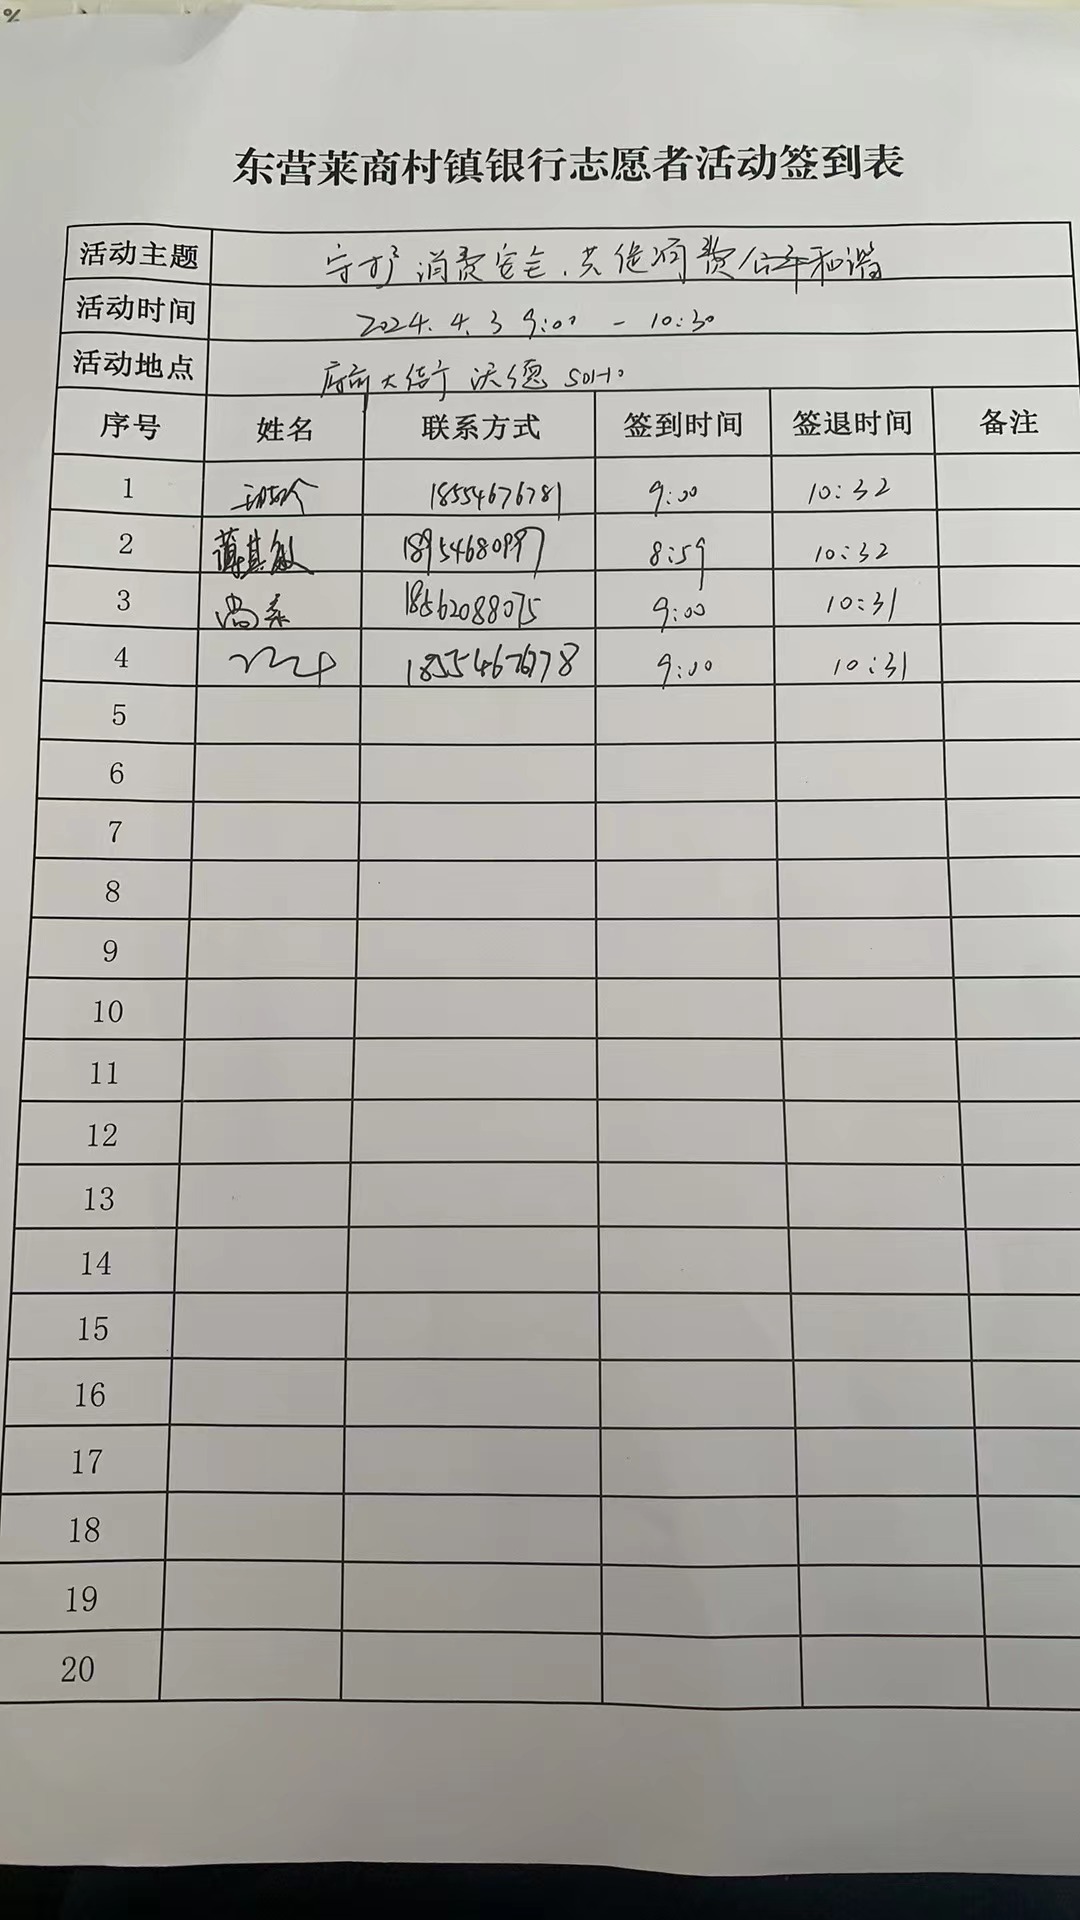 东营莱商村镇银行志愿者活动签到表
活动主题 守护消费安全、共促消费公平和谐
活动时间 2024.4.3 9:00 - 10:30
活动地点 府前大街 沃德 SOHO
序号 姓名 联系方式 签到时间 签退时间 备注
1 18554676781 9:00 10:32
2 薄其敏 18954680997 8:59 10:32
3 尚东 18562088075 9:00 10:31
4 9:00 10:31
5
6
7
8
9
10
11
12
13
14
15
16
17
18
19
20